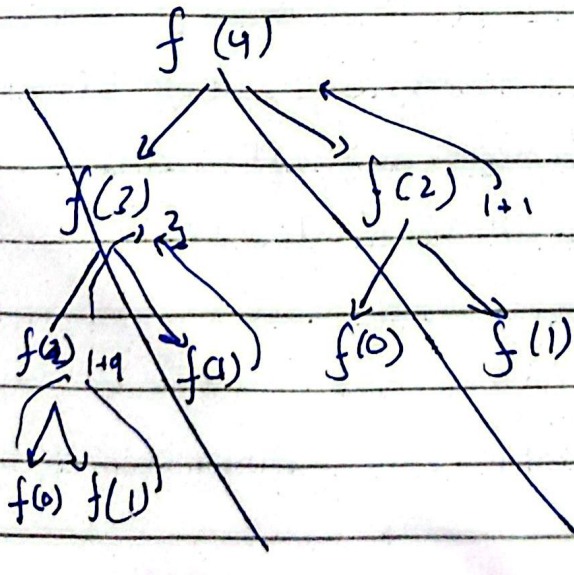 f(4)
f(3) f(2) 1+1
3
f(2) 1+1 f(1) f(0) f(1)
f(0) f(1)